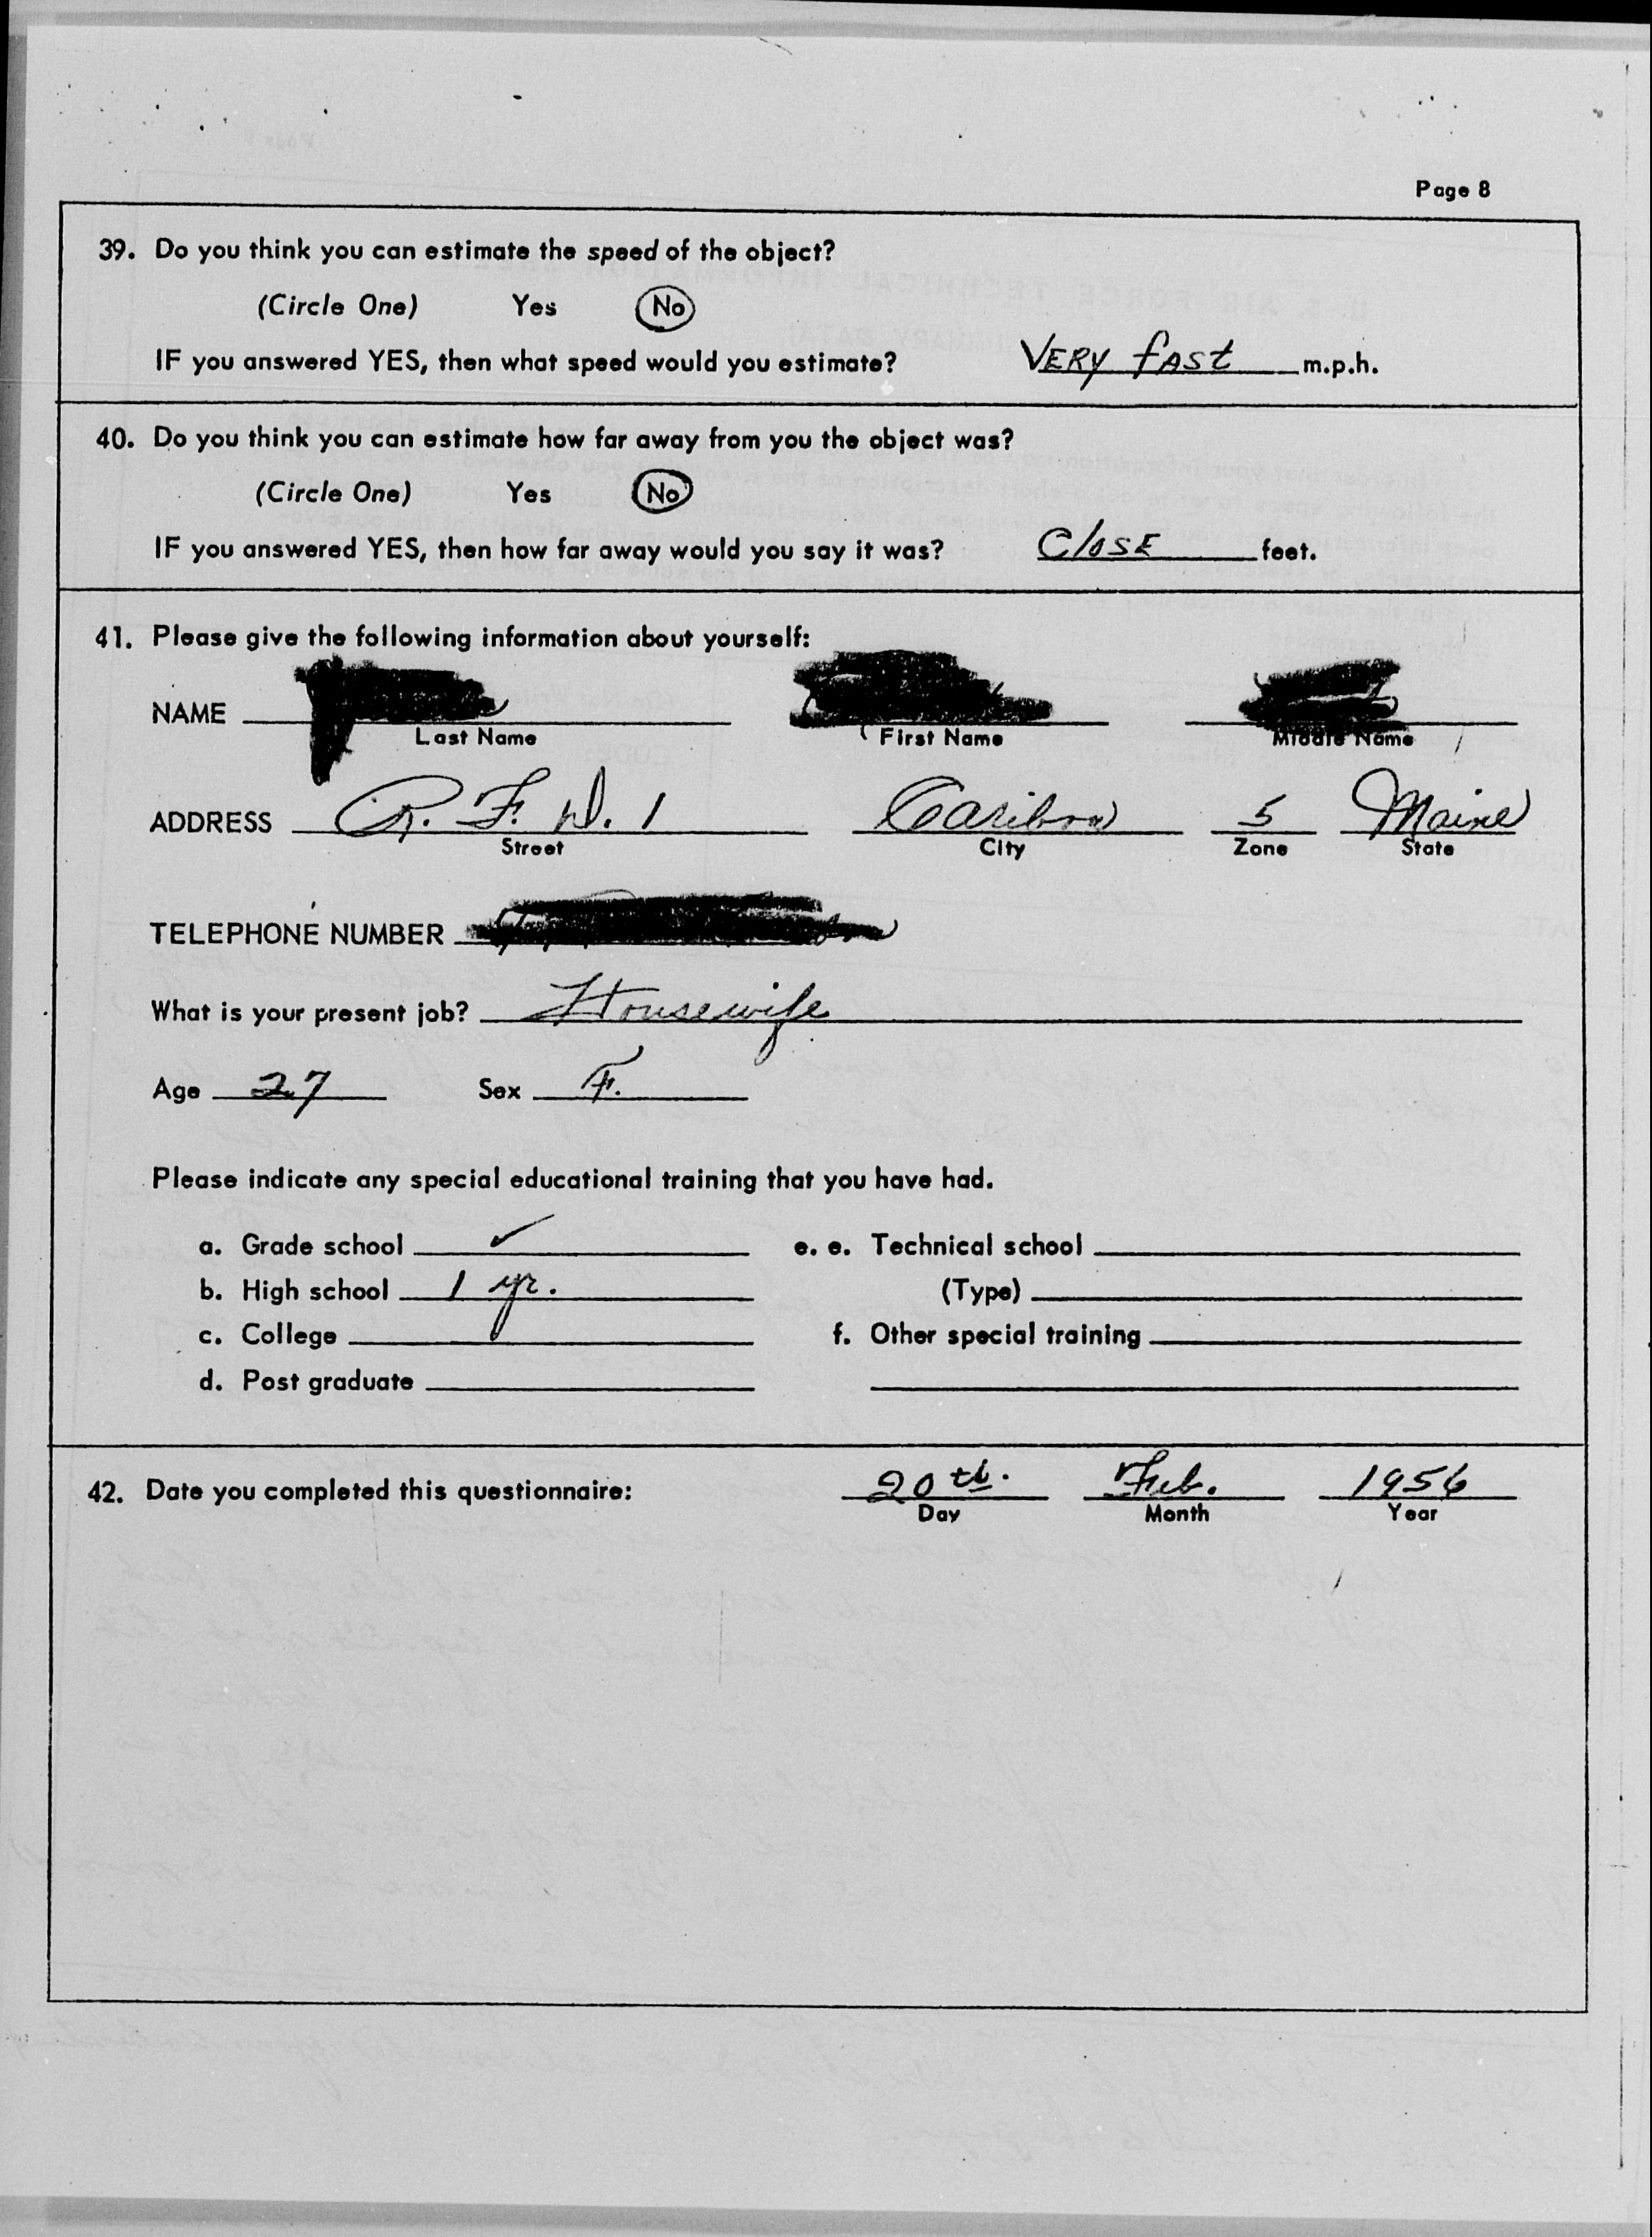 Page 8
39. Do you think you can estimate the speed of the object?
(Circle One) Yes No
IF you answered YES, then what speed would you estimate? VERY fAST m.p.h.
40. Do you think you can estimate how far away from you the object was?
(Circle One) Yes No
IF you answered YES, then how far away would you say it was? ClOSE feet.
41. Please give the following information about yourself:
NAME
Last Name First Name Middle Name
ADDRESS R. F. D. 1 Caribou 5 Maine
Street City Zone State
TELEPHONE NUMBER
What is your present job? Housewife
Age 27 Sex F.
Please indicate any special educational training that you have had.
a. Grade school ✓ e. e. Technical school
b. High school 1 yr. (Type)
c. College f. Other special training
d. Post graduate
42. Date you completed this questionnaire: 20th. Feb. 1956
Day Month Year